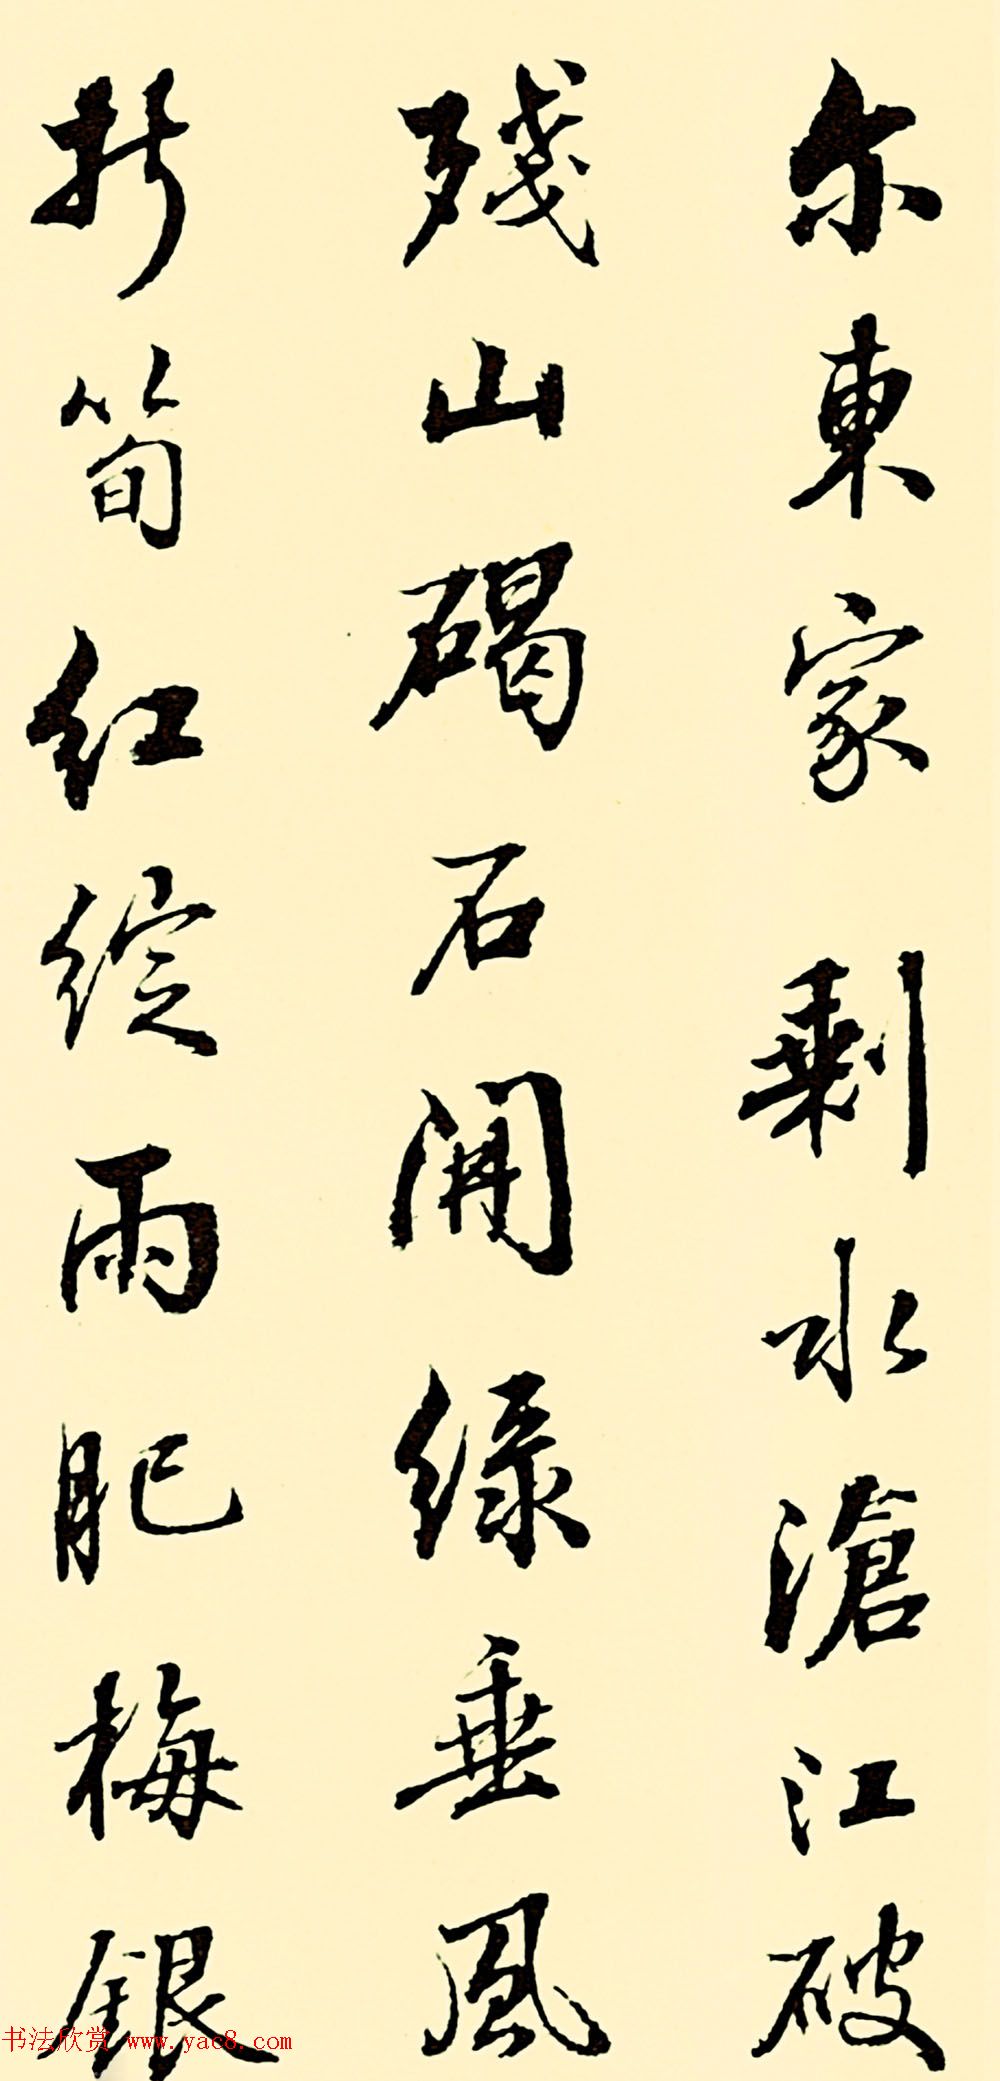 尔東家剩水滄江破
殘山碣石開綠垂風
折筍紅綻雨肥梅銀
书法欣赏 www.yac8.com